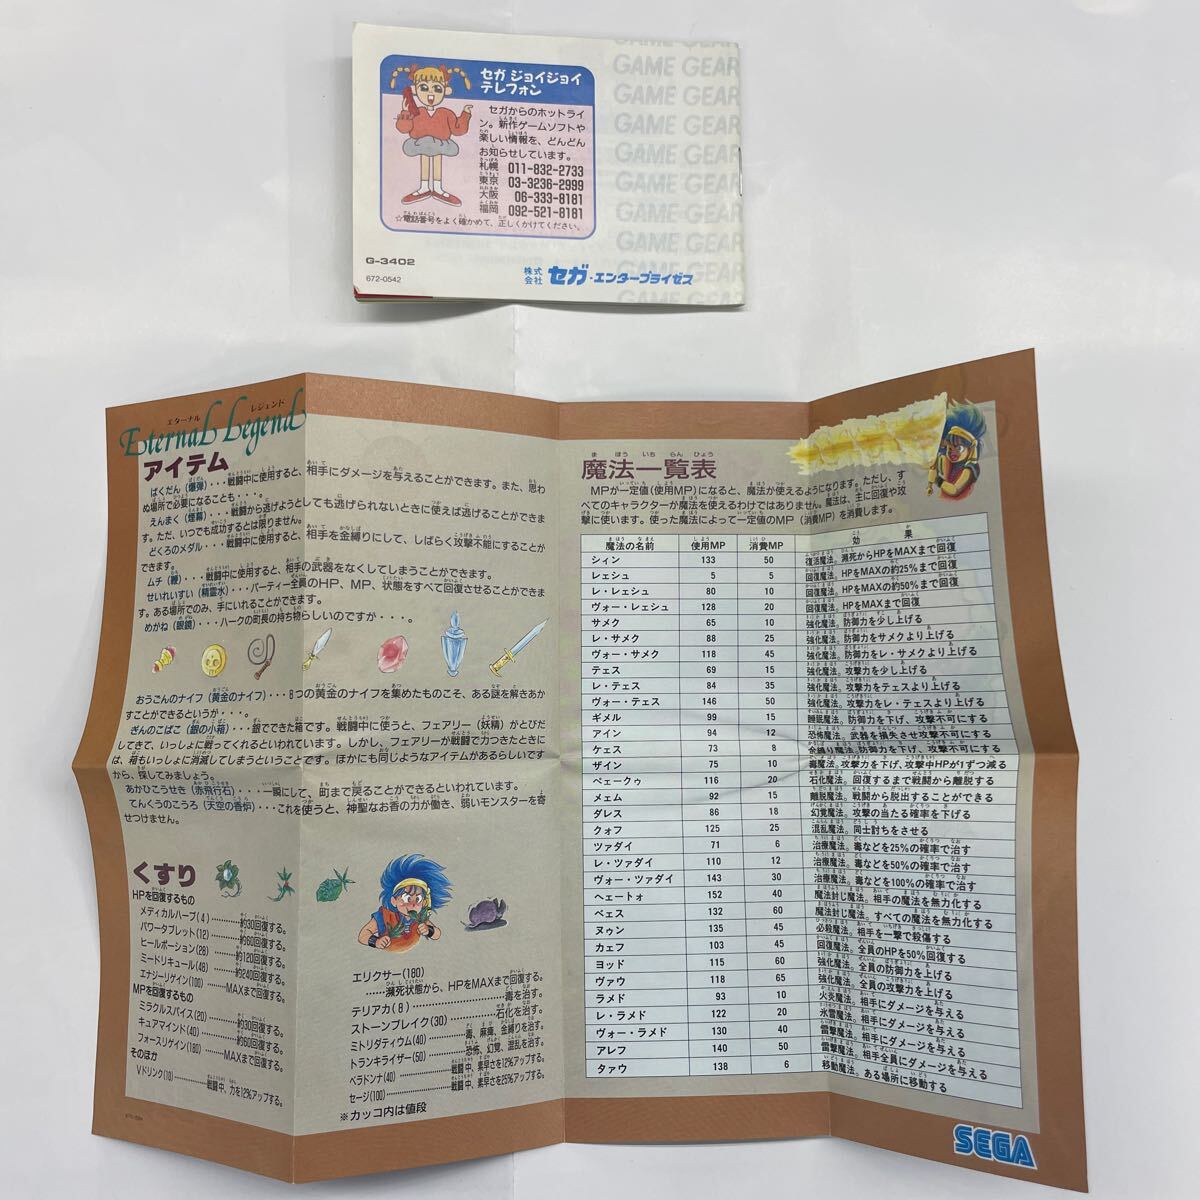 GAME GEAR
GAME GEAR
GAME GEAR
GAME GEAR
GAME GEAR
GAME GEAR
GAME GEAR
GAME GEAR
GAME GEAR
セガ ジョイジョイ
テレフォン
セガからのホットライ
ン。新作ゲームソフトや
楽しい情報を、どんどん
お知らせしています。
札幌 011-832-2733
東京 03-3236-2999
大阪 06-333-8181
福岡 092-521-8181
☆電話番号をよく確かめて、正しくかけてください。
G-3402
672-0542
株式会社 セガ・エンタープライゼス
エターナル レジェンド
Eternal Legend
アイテム
ばくだん(爆弾)・・・戦闘中に使用すると、相手にダメージを与えることができます。また、思わ
ぬ場所で必要になることも・・・。
えんまく(煙幕)・・・戦闘から逃げようとしても逃げられないときに使えば逃げることができま
す。ただ、いつでも成功するとは限りません。
どくろのメダル・・・戦闘中に使用すると、相手を金縛りにして、しばらく攻撃不能にすることが
できます。
ムチ(鞭)・・・戦闘中に使用すると、相手の武器をなくしてしまうことができます。
せいれいすい(精霊水)・・・パーティー全員のHP、MP、状態をすべて回復させることができま
す。ある場所でのみ、手にいれることができます。
めがね(眼鏡)・・・ハークの町長の持ち物らしいのですが・・・。
おうごんのナイフ(黄金のナイフ)・・・8つの黄金のナイフを集めたものこそ、ある謎を解きあか
すことができるというが・・・。
ぎんのこばこ(銀の小箱)・・・銀でできた箱です。戦闘中に使うと、フェアリー(妖精)がとびだ
してきて、いっしょに戦ってくれるといわれています。しかし、フェアリーが戦闘で力つきたときに
は、箱もいっしょに消滅してしまうということです。ほかにも同じようなアイテムがあるらしいです
から、探してみましょう。
あかひこうせき(赤飛行石)・・・一瞬にして、町まで戻ることができるといわれています。
てんくうのこうろ(天空の香炉)・・・これを使うと、神聖なお香の力が働き、弱いモンスターを寄
せつけません。
くすり
HPを回復するもの
メディカルハーブ(4)………約30回復する。
パワータブレット(12)………約60回復する。
ヒールポーション(28)………約120回復する。
ミードリキュール(48)………約240回復する。
エナジーリゲイン(100)………MAXまで回復する。
MPを回復するもの
ミラクルスパイス(20)………約30回復する。
キュアマインド(40)………約60回復する。
フォースリゲイン(180)………MAXまで回復する。
そのほか
Vドリンク(18)………戦闘中、力を12%アップする。
エリクサー(180)
……瀕死状態から、HPをMAXまで回復する。
テリアカ(8)………毒を治す。
ストーンブレイク(30)………石化を治す。
ミトリダティウム(40)………毒、麻痺、金縛りを治す。
トランキライザー(50)………恐怖、幻覚、混乱を治す。
ベラドンナ(40)………戦闘中、素早さを12%アップする。
セージ(100)………戦闘中、素早さを25%アップする。
※カッコ内は値段
魔法一覧表
MPが一定値(使用MP)になると、魔法が使えるようになります。ただし、す
べてのキャラクターが魔法を使えるわけではありません。魔法は、主に回復や攻
撃に使います。使った魔法によって一定値のMP(消費MP)を消費します。
魔法の名前 使用MP 消費MP 効果
シィン 133 50 復活魔法。瀕死からHPをMAXまで回復
レェシュ 5 5 回復魔法。HPをMAXの約25%まで回復
レ・レェシュ 80 10 回復魔法。HPをMAXの約50%まで回復
ヴォー・レェシュ 128 20 回復魔法。HPをMAXまで回復
サメク 65 10 強化魔法。防御力を少し上げる
レ・サメク 88 25 強化魔法。防御力をサメクより上げる
ヴォー・サメク 118 45 強化魔法。防御力をレ・サメクより上げる
テェス 69 15 強化魔法。攻撃力を少し上げる
レ・テェス 84 35 強化魔法。攻撃力をテェスより上げる
ヴォー・テェス 146 50 強化魔法。攻撃力をレ・テェスより上げる
ギメル 99 15 睡眠魔法。防御力を下げ、攻撃不可にする
アイン 94 12 恐怖魔法。武器を損失させ攻撃不可にする
ケェス 73 8 金縛り魔法。防御力を下げ、攻撃不可にする
ザイン 75 10 毒魔法。攻撃力を下げ、攻撃中HPが1ずつ減る
ペェークゥ 116 20 石化魔法。回復するまで戦闘から離脱する
メェム 92 15 離脱魔法。戦闘から脱出することができる
ダレス 86 18 幻覚魔法。攻撃の当たる確率を下げる
クォフ 125 25 混乱魔法。同士討ちをさせる
ツァダイ 71 6 治療魔法。毒などを25%の確率で治す
レ・ツァダイ 110 12 治療魔法。毒などを50%の確率で治す
ヴォー・ツァダイ 143 30 治療魔法。毒などを100%の確率で治す
ヘェートォ 152 40 魔法封じ魔法。相手の魔法を無力化する
ベェス 132 60 魔法封じ魔法。すべての魔法を無力化する
ヌゥン 135 45 必殺魔法。相手を一撃で殺傷する
カェフ 103 45 回復魔法。全員のHPを50%回復する
ヨッド 115 60 強化魔法。全員の防御力を上げる
ヴァウ 118 65 強化魔法。全員の攻撃力を上げる
ラメド 93 10 火炎魔法。相手にダメージを与える
レ・ラメド 122 20 氷雪魔法。相手にダメージを与える
ヴォー・ラメド 130 40 雷撃魔法。相手にダメージを与える
アレフ 140 50 雷撃魔法。相手全員にダメージを与える
タァウ 138 6 移動魔法。ある場所に移動する
SEGA